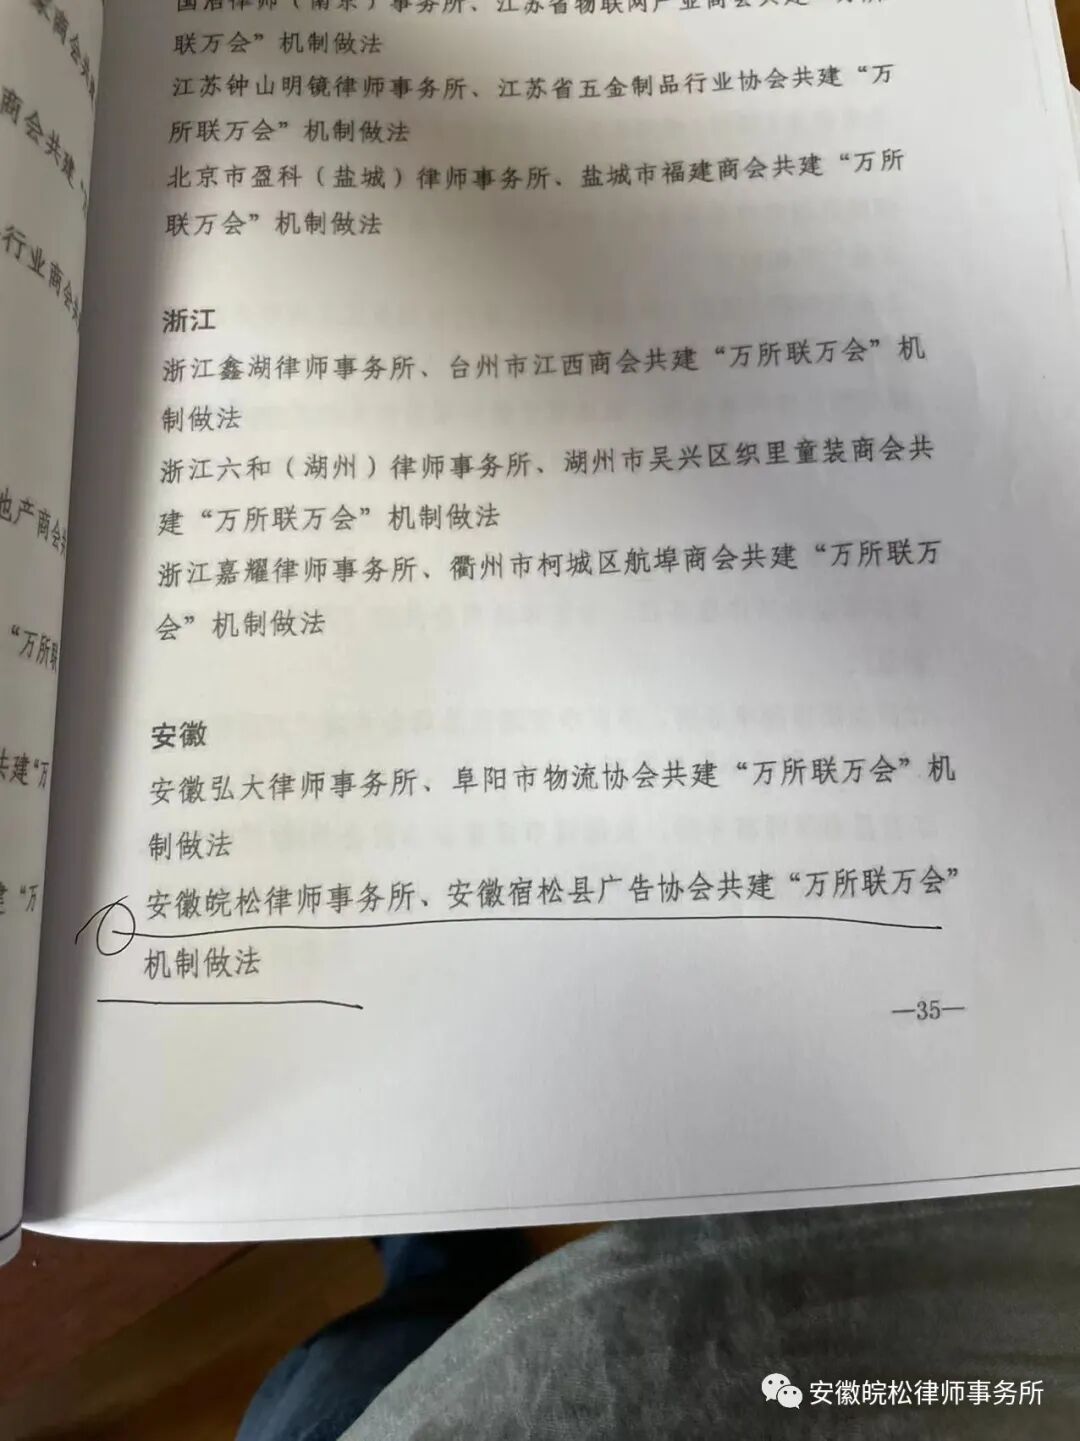 国浩律师（南京）事务所、江苏省物联网产业商会共建“万所
联万会”机制做法
江苏钟山明镜律师事务所、江苏省五金制品行业协会共建“万
所联万会”机制做法
北京市盈科（盐城）律师事务所、盐城市福建商会共建“万所
联万会”机制做法
浙江
浙江鑫湖律师事务所、台州市江西商会共建“万所联万会”机
制做法
浙江六和（湖州）律师事务所、湖州市吴兴区织里童装商会共
建“万所联万会”机制做法
浙江嘉耀律师事务所、衢州市柯城区航埠商会共建“万所联万
会”机制做法
安徽
安徽弘大律师事务所、阜阳市物流协会共建“万所联万会”机
制做法
安徽皖松律师事务所、安徽宿松县广告协会共建“万所联万会”
机制做法
—35—
商会共
商会共建“
行业商会共
地产商会共
“万所联
共建“万
建“万
安徽皖松律师事务所